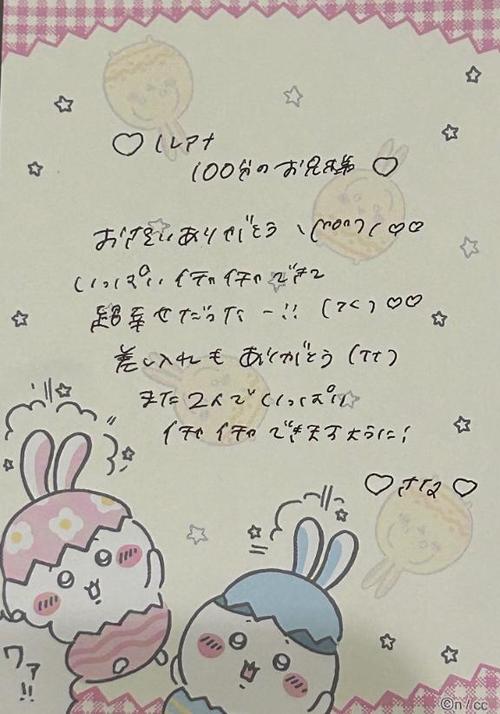 ♡ルレアナ
100分のお兄様♡
お誘いありがとう
いっぱいイチャイチャできて
超幸せだったー!! (>く) ♡♡
差し入れもありがとう (TT)
また2人でいっぱい
イチャイチャできますように!
♡さな♡
ワァ!!
©n/cc